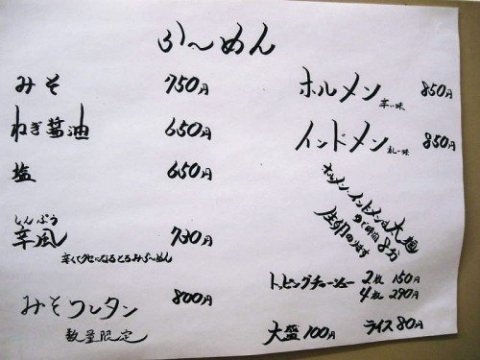 らーめん
みそ 750円
ねぎ醤油 650円
塩 650円
しんぷう
辛風 730円
辛くてクセになるとろみらーめん
みそフレタン 800円
数量限定
ホルメン 辛い味 850円
インドメン カレー味 850円
ホルメン・インドメンは太麺
ゆで時間8分
生卵つきます
トッピングチャーシュー 2枚 150円
4枚 290円
大盛 100円 ライス 80円